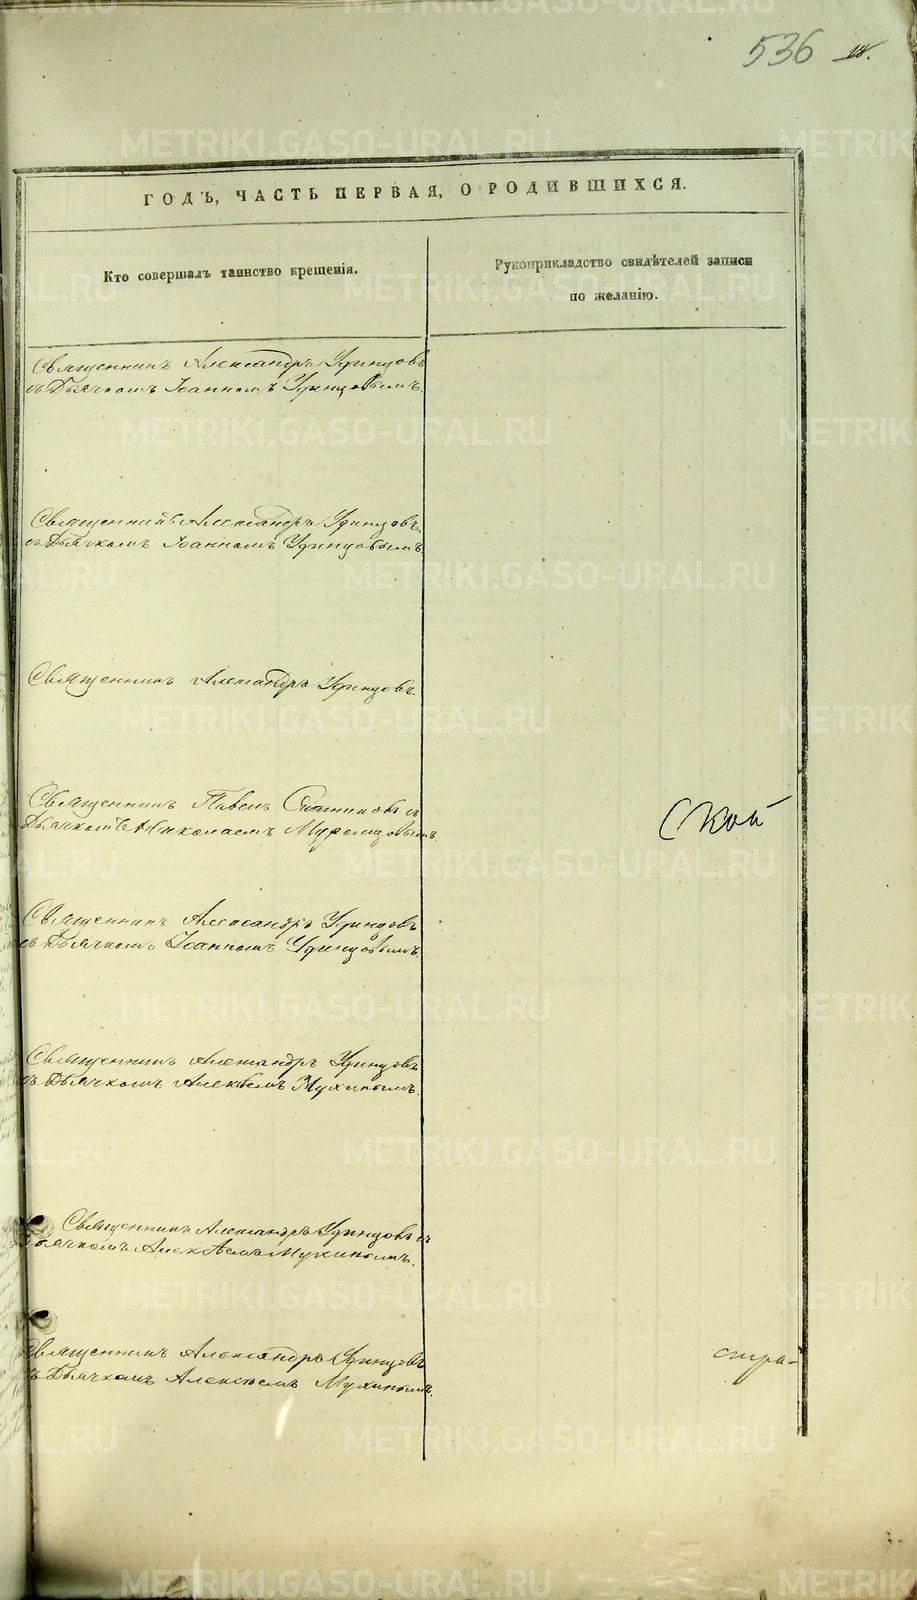 536
ГОДЪ, ЧАСТЬ ПЕРВАЯ, О РОДИВШИХСЯ.
Кто совершалъ таинство крещенія.
Рукоприкладство свидѣтелей записи
по желанію.
Священникъ Александръ Удинцовъ
съ Дьячкомъ Іоанномъ Удинцовымъ.
Священникъ Александръ Удинцовъ
съ Дьячкомъ Іоанномъ Удинцовымъ.
Священникъ Александръ Удинцовъ.
Священникъ Павелъ съ
Дьячкомъ Николаемъ
ской
Священникъ Александръ Удинцовъ
съ Дьячкомъ Іоанномъ Удинцовымъ.
Священникъ Александръ Удинцовъ
съ Дьячкомъ Алексѣемъ Мухинымъ.
Священникъ Александръ Удинцовъ съ
Дьячкомъ Алексѣемъ Мухинымъ.
Священникъ Александръ Удинцовъ
съ Дьячкомъ Алексѣемъ Мухинымъ.
METRIKI.GASO-URAL.RU